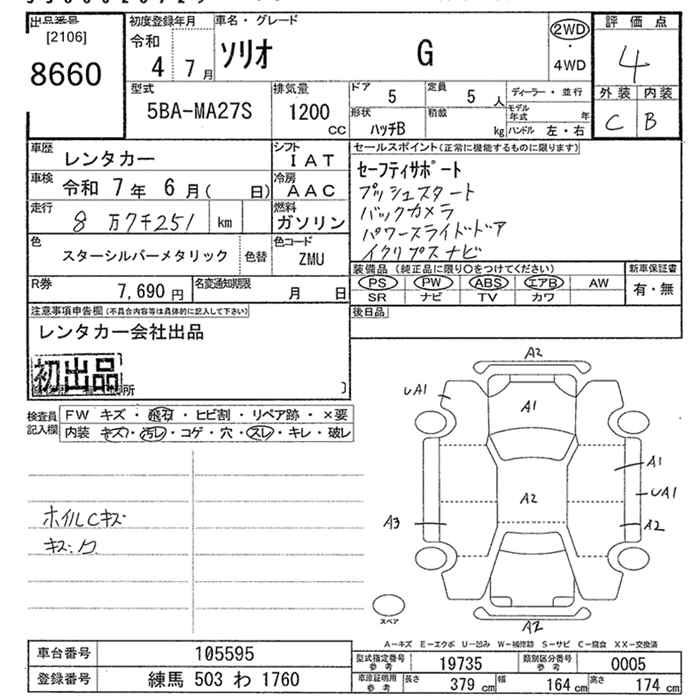 出品番号 初度登録年月 車名・グレード 評価点
[2106] 令和 ソリオ G 2WD ・ 4WD 4
8660 4 7月 外装 内装
型式 排気量 ドア 5 定員 5人 ディーラー・並行 C B
5BA-MA27S 1200 CC 形状 ハッチB 積載 kg モデル年式 年 ハンドル 左・右
車歴 レンタカー シフト IAT セールスポイント(正常に機能するものに限ります)
車検 令和 7年 6月( 日) 冷房 AAC セーフティサポート
走行 8万7千251 km 燃料 ガソリン プッシュスタート
バックカメラ
パワースライドドア
イクリプスナビ
色 スターシルバーメタリック 色替 色コード ZMU
装備品(純正品に限り○をつけてください) 新車保証書
PS PW ABS エアB AW 有・無
SR ナビ TV カワ
R券 7,690円 名変通知期限 月 日
後日品
注意事項申告欄(不具合内容等は具体的に記入して下さい)
レンタカー会社出品
初出品
所 )
検査員記入欄 FW キズ・飛石・ヒビ割・リペア跡・×要
内装 キズ・汚レ・コゲ・穴・スレ・キレ・破レ
ホイルCキズ
キズ、ク
A2
UA1 A1
A1
A2 UA1
A3 A2
スペア A2
A-キズ E-エクボ U-凹み W-補修跡 S-サビ C-腐食 XX-交換済
車台番号 105595 型式指定番号 参考 19735 類別区分番号 参考 0005
登録番号 練馬 503 わ 1760 車庫証明用 参考 長さ 379 cm 幅 164 cm 高さ 174 cm